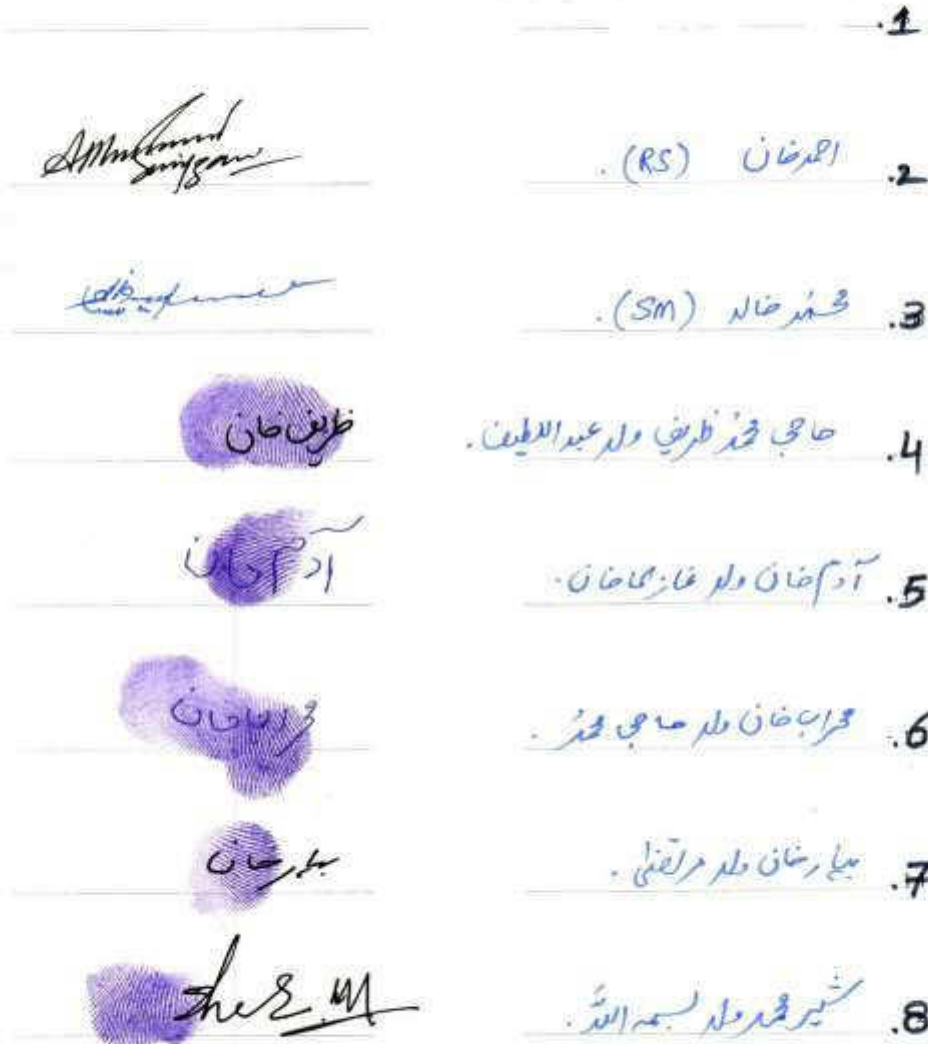 .1
.2 احمدخان (RS).
.3 محمد خالد (SM).
.4 حاجی محمد ظریف ولد عبداللطیف.
ظریف خان
.5 آدم خان ولد غازی خان.
آدم خان
.6 محراب خان ولد حاجی محمد.
محراب خان
.7 بہار خان ولد مرتضیٰ.
بہار خان
.8 شیر محمد ولد بسمہ اللہ.
Sher M